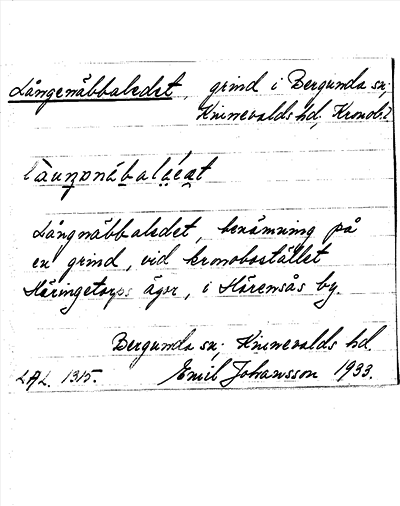 Långenäbbaledet, grind i Bergunda sn;
Kinnevalds hd, Kronob. l
Långnäbbaledet, benämning på
en grind, vid kronobostället
Häringetorps ägor, i Härensås by.
Bergunda sn; Kinnevalds hd.
LAL. 1315. Emil Johansson 1933.